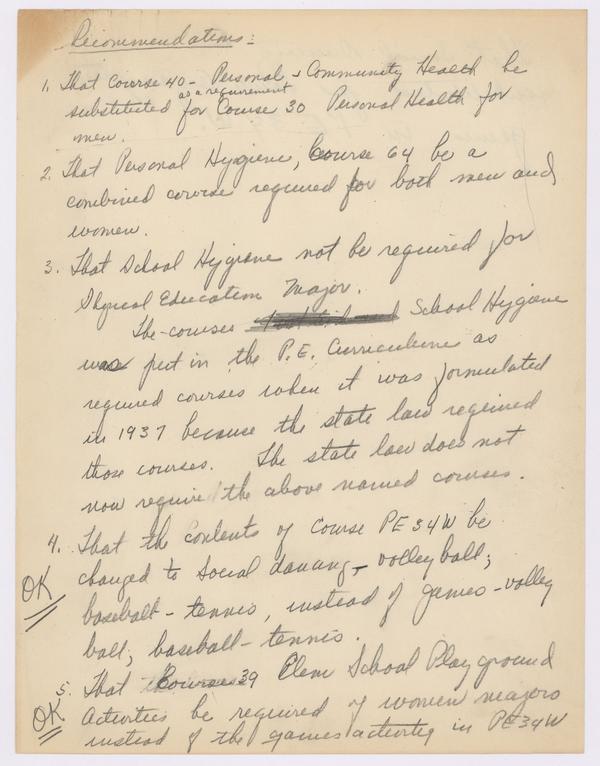 Recommendations:
1. That Course 40 - Personal + Community Health be
as a requirement
substituted for Course 30 Personal Health for
men.
2. That Personal Hygiene, Course 64 be a
combined course required for both men and
women.
3. That School Hygiene not be required for
Physical Education Major.
The courses School Hygiene
was put in the P.E. Curriculum as
required courses when it was formulated
in 1937 because the state law required
those courses. The state law does not
now require the above named courses.
4. That the contents of Course PE 34W be
OK changed to Social dancing - volley ball;
baseball - tennis, instead of games - volley
ball; baseball - tennis.
5. That Course 39 Elem School Playground
OK Activities be required of women majors
instead of the games activity in PE 34W